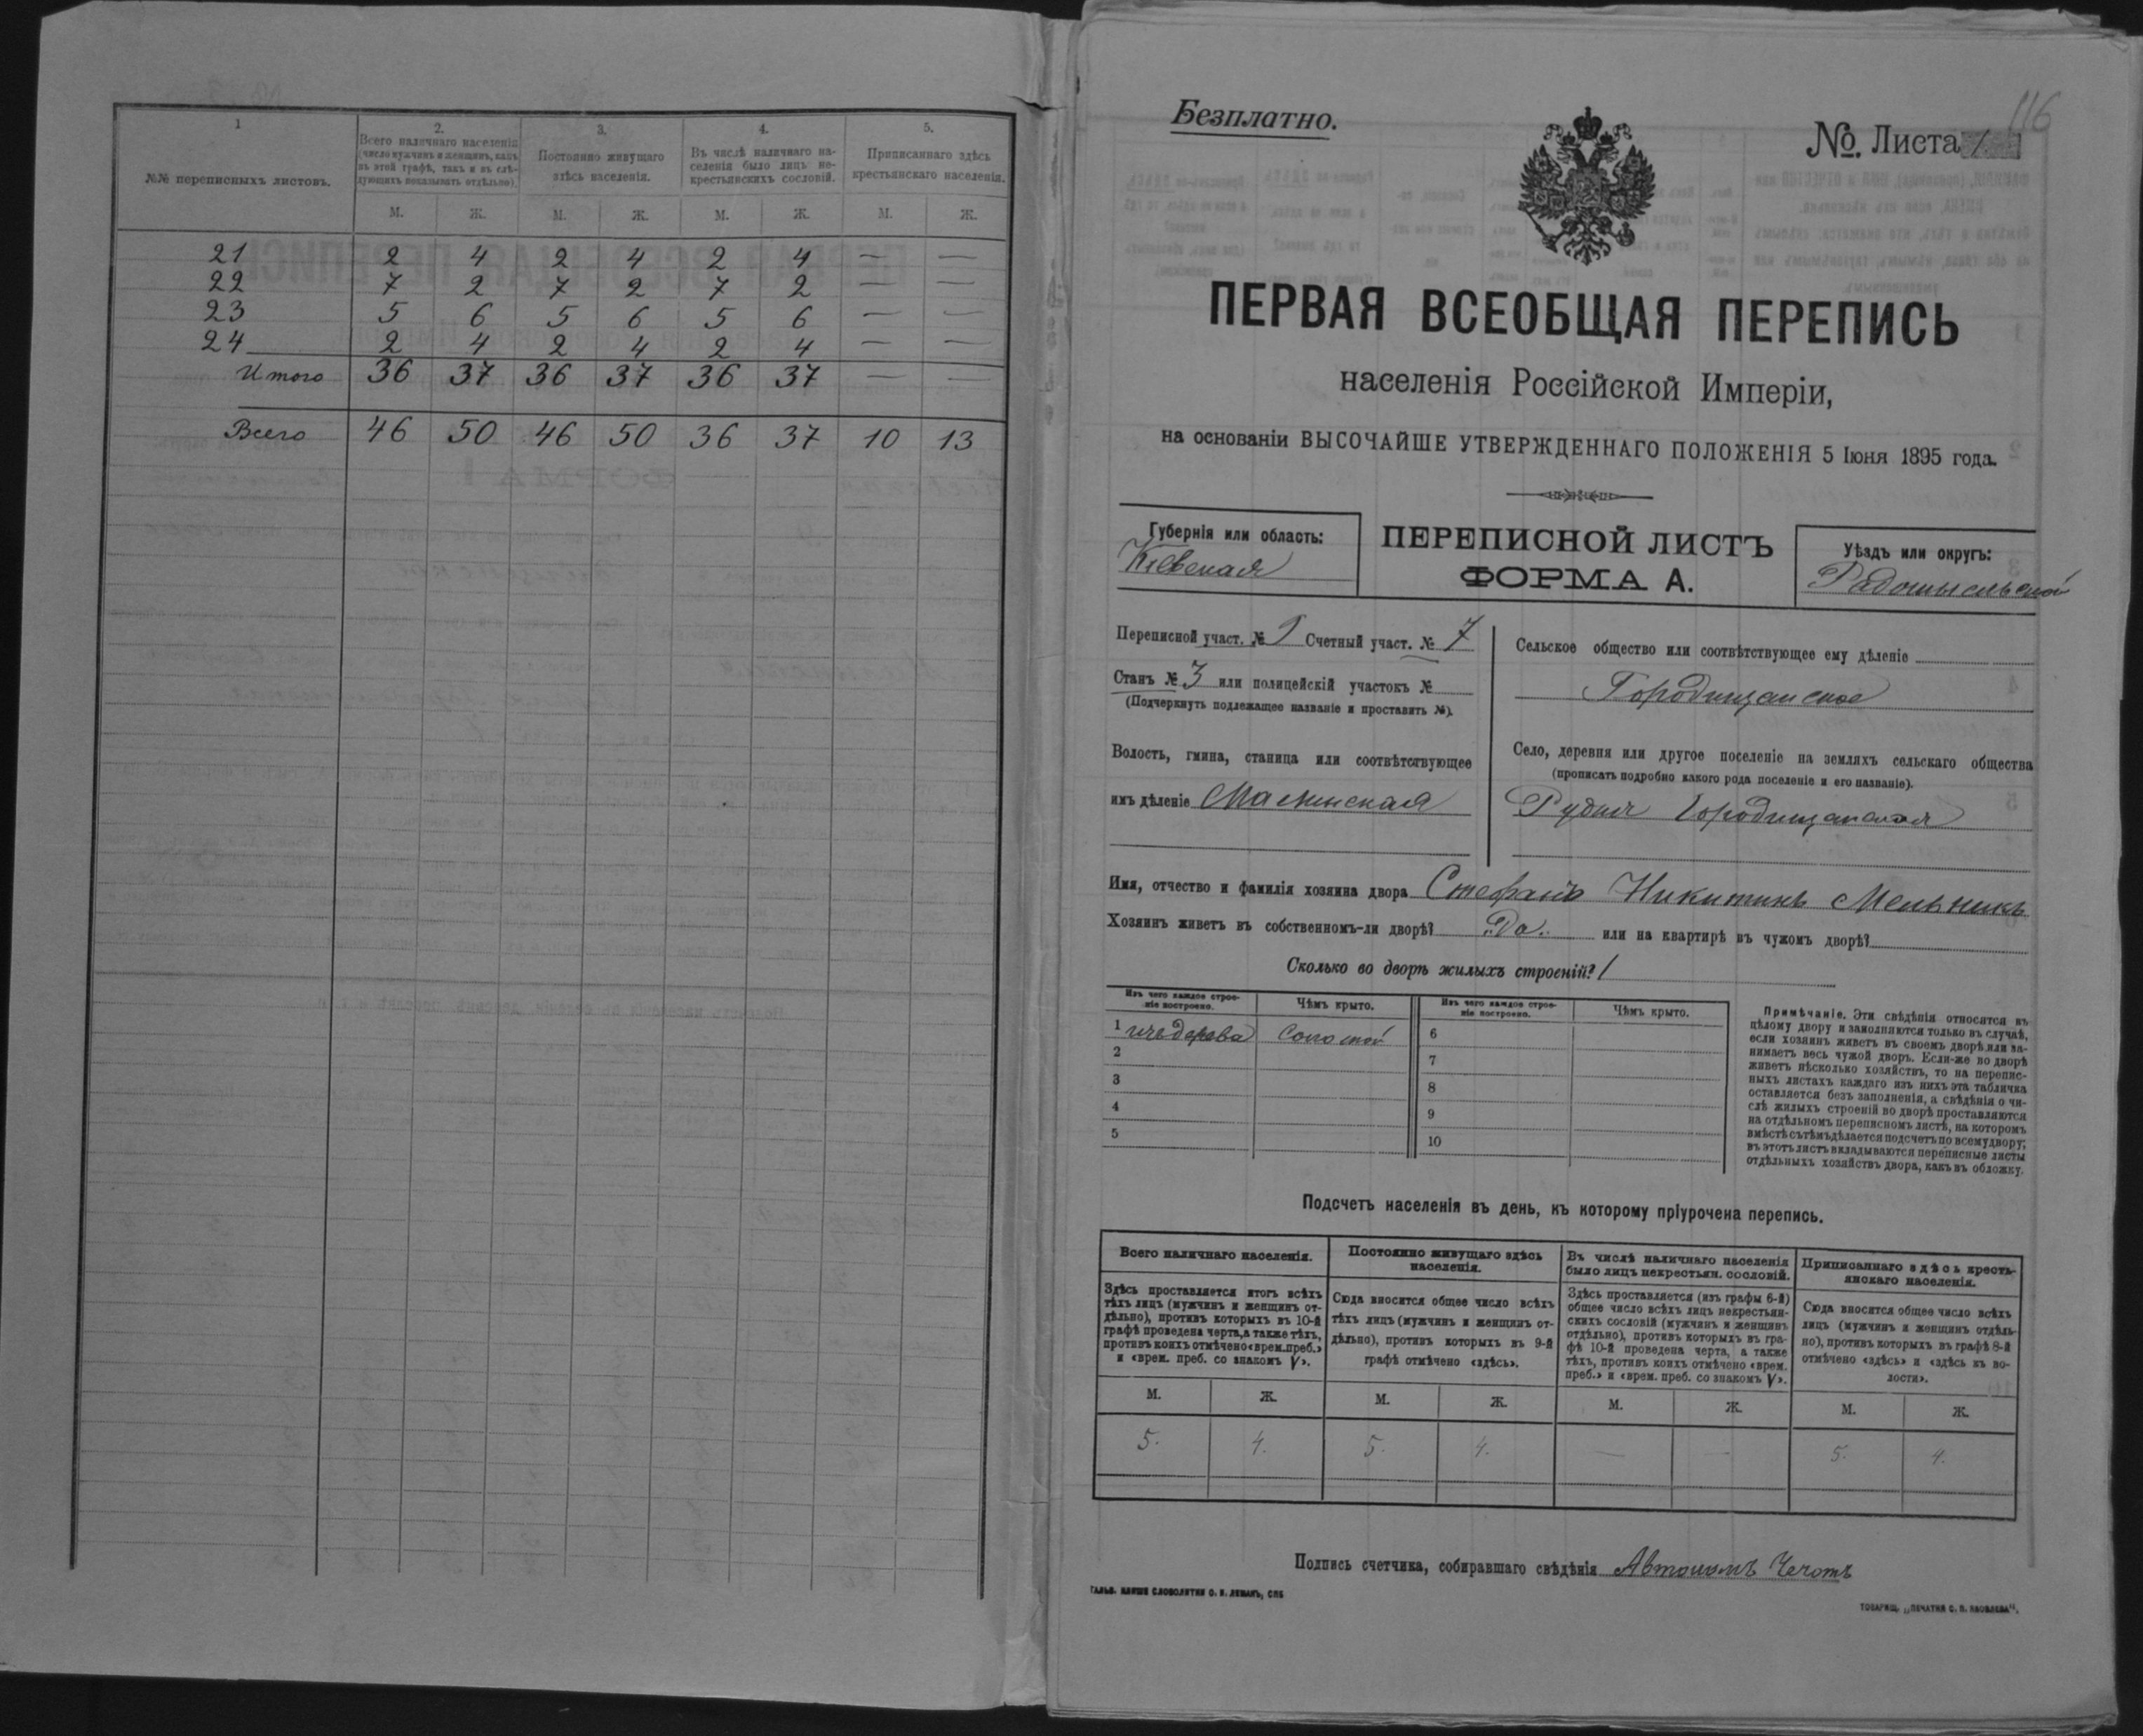 1
2.
3.
4.
5.
№№ переписныхъ листовъ.
Всего наличнаго населенія
(число мужчинъ и женщинъ, какъ
въ этой графѣ, такъ и въ слѣ-
дующихъ показывать отдѣльно).
Постоянно живущаго
здѣсь населенія.
Въ числѣ наличнаго на-
селенія было лицъ не-
крестьянскихъ сословій.
Приписаннаго здѣсь
крестьянскаго населенія.
М. Ж. М. Ж. М. Ж. М. Ж.
21 2 4 2 4 2 4 — —
22 7 2 7 2 7 2 — —
23 5 6 5 6 5 6 — —
24 2 4 2 4 2 4 — —
Итого 36 37 36 37 36 37 — —
Всего 46 50 46 50 36 37 10 13
116
Безплатно.
№. Листа 1
ПЕРВАЯ ВСЕОБЩАЯ ПЕРЕПИСЬ
населенія Россійской Имперіи,
на основаніи ВЫСОЧАЙШЕ УТВЕРЖДЕННАГО ПОЛОЖЕНІЯ 5 Іюня 1895 года.
Губернія или область:
Кіевская
ПЕРЕПИСНОЙ ЛИСТЪ
ФОРМА А.
Уѣздъ или округъ:
Радомысльской
Переписной участ. № Счетный участ. № 7
Станъ № 3 или полицейскій участокъ №
(Подчеркнуть подлежащее названіе и проставить №).
Волость, гмина, станица или соотвѣтствующее
имъ дѣленіе Малинская
Сельское общество или соотвѣтствующее ему дѣленіе
Городищанское
Село, деревня или другое поселеніе на земляхъ сельскаго общества
(прописать подробно какого рода поселеніе и его названіе).
Рудня Городищанская
Имя, отчество и фамилія хозяина двора Стефанъ Никитинъ Мельникъ
Хозяинъ живетъ въ собственномъ-ли дворѣ? Да. или на квартирѣ въ чужомъ дворѣ?
Сколько во дворѣ жилыхъ строеній? 1
Изъ чего каждое строе-
ніе построено.
Чѣмъ крыто.
Изъ чего каждое строе-
ніе построено.
Чѣмъ крыто.
1 изъ дерева соломой 6
2 7
3 8
4 9
5 10
Примѣчаніе. Эти свѣдѣнія относятся къ
цѣлому двору и заполняются только въ случаѣ,
если хозяинъ живетъ въ своемъ дворѣ или за-
нимаетъ весь чужой дворъ. Если-же во дворѣ
живетъ нѣсколько хозяйствъ, то на перепис-
ныхъ листахъ каждаго изъ нихъ эта табличка
оставляется безъ заполненія, а свѣдѣнія о чи-
слѣ жилыхъ строеній во дворѣ проставляются
на отдѣльномъ переписномъ листѣ, на которомъ
вмѣстѣ съ тѣмъ дѣлается подсчетъ по всему двору;
въ этотъ листъ вкладываются переписные листы
отдѣльныхъ хозяйствъ двора, какъ въ обложку.
Подсчетъ населенія въ день, къ которому пріурочена перепись.
Всего наличнаго населенія.
Постоянно живущаго здѣсь
населенія.
Въ числѣ наличнаго населенія
было лицъ некрестьян. сословій.
Приписаннаго здѣсь кресть-
янскаго населенія.
Здѣсь проставляется итогъ всѣхъ
тѣхъ лицъ (мужчинъ и женщинъ от-
дѣльно), противъ которыхъ въ 10-й
графѣ проведена черта, а также тѣхъ,
противъ коихъ отмѣчено «врем. преб.»
и «врем. преб. со знакомъ V».
Сюда вносится общее число всѣхъ
тѣхъ лицъ (мужчинъ и женщинъ от-
дѣльно), противъ которыхъ въ 9-й
графѣ отмѣчено «здѣсь».
Здѣсь проставляется (изъ графы 6-й)
общее число всѣхъ лицъ некрестьян-
скихъ сословій (мужчинъ и женщинъ
отдѣльно), противъ которыхъ въ гра-
фѣ 10-й проведена черта, а также
тѣхъ, противъ коихъ отмѣчено «врем.
преб.» и «врем. преб. со знакомъ V».
Сюда вносится общее число всѣхъ
лицъ (мужчинъ и женщинъ отдѣль-
но), противъ которыхъ въ графѣ 8-й
отмѣчено «здѣсь» и «здѣсь къ во-
лости».
М. Ж. М. Ж. М. Ж. М. Ж.
5. 4. 5. 4. — — 5. 4.
Подпись счетчика, собиравшаго свѣдѣнія Автономъ Чечотъ
ГАЛЬВ. КЛИШЕ СЛОВОЛИТНИ О. И. ЛЕМАНЪ, СПБ
ТОВАРИЩ. „ПЕЧАТНЯ С. П. ЯКОВЛЕВА".